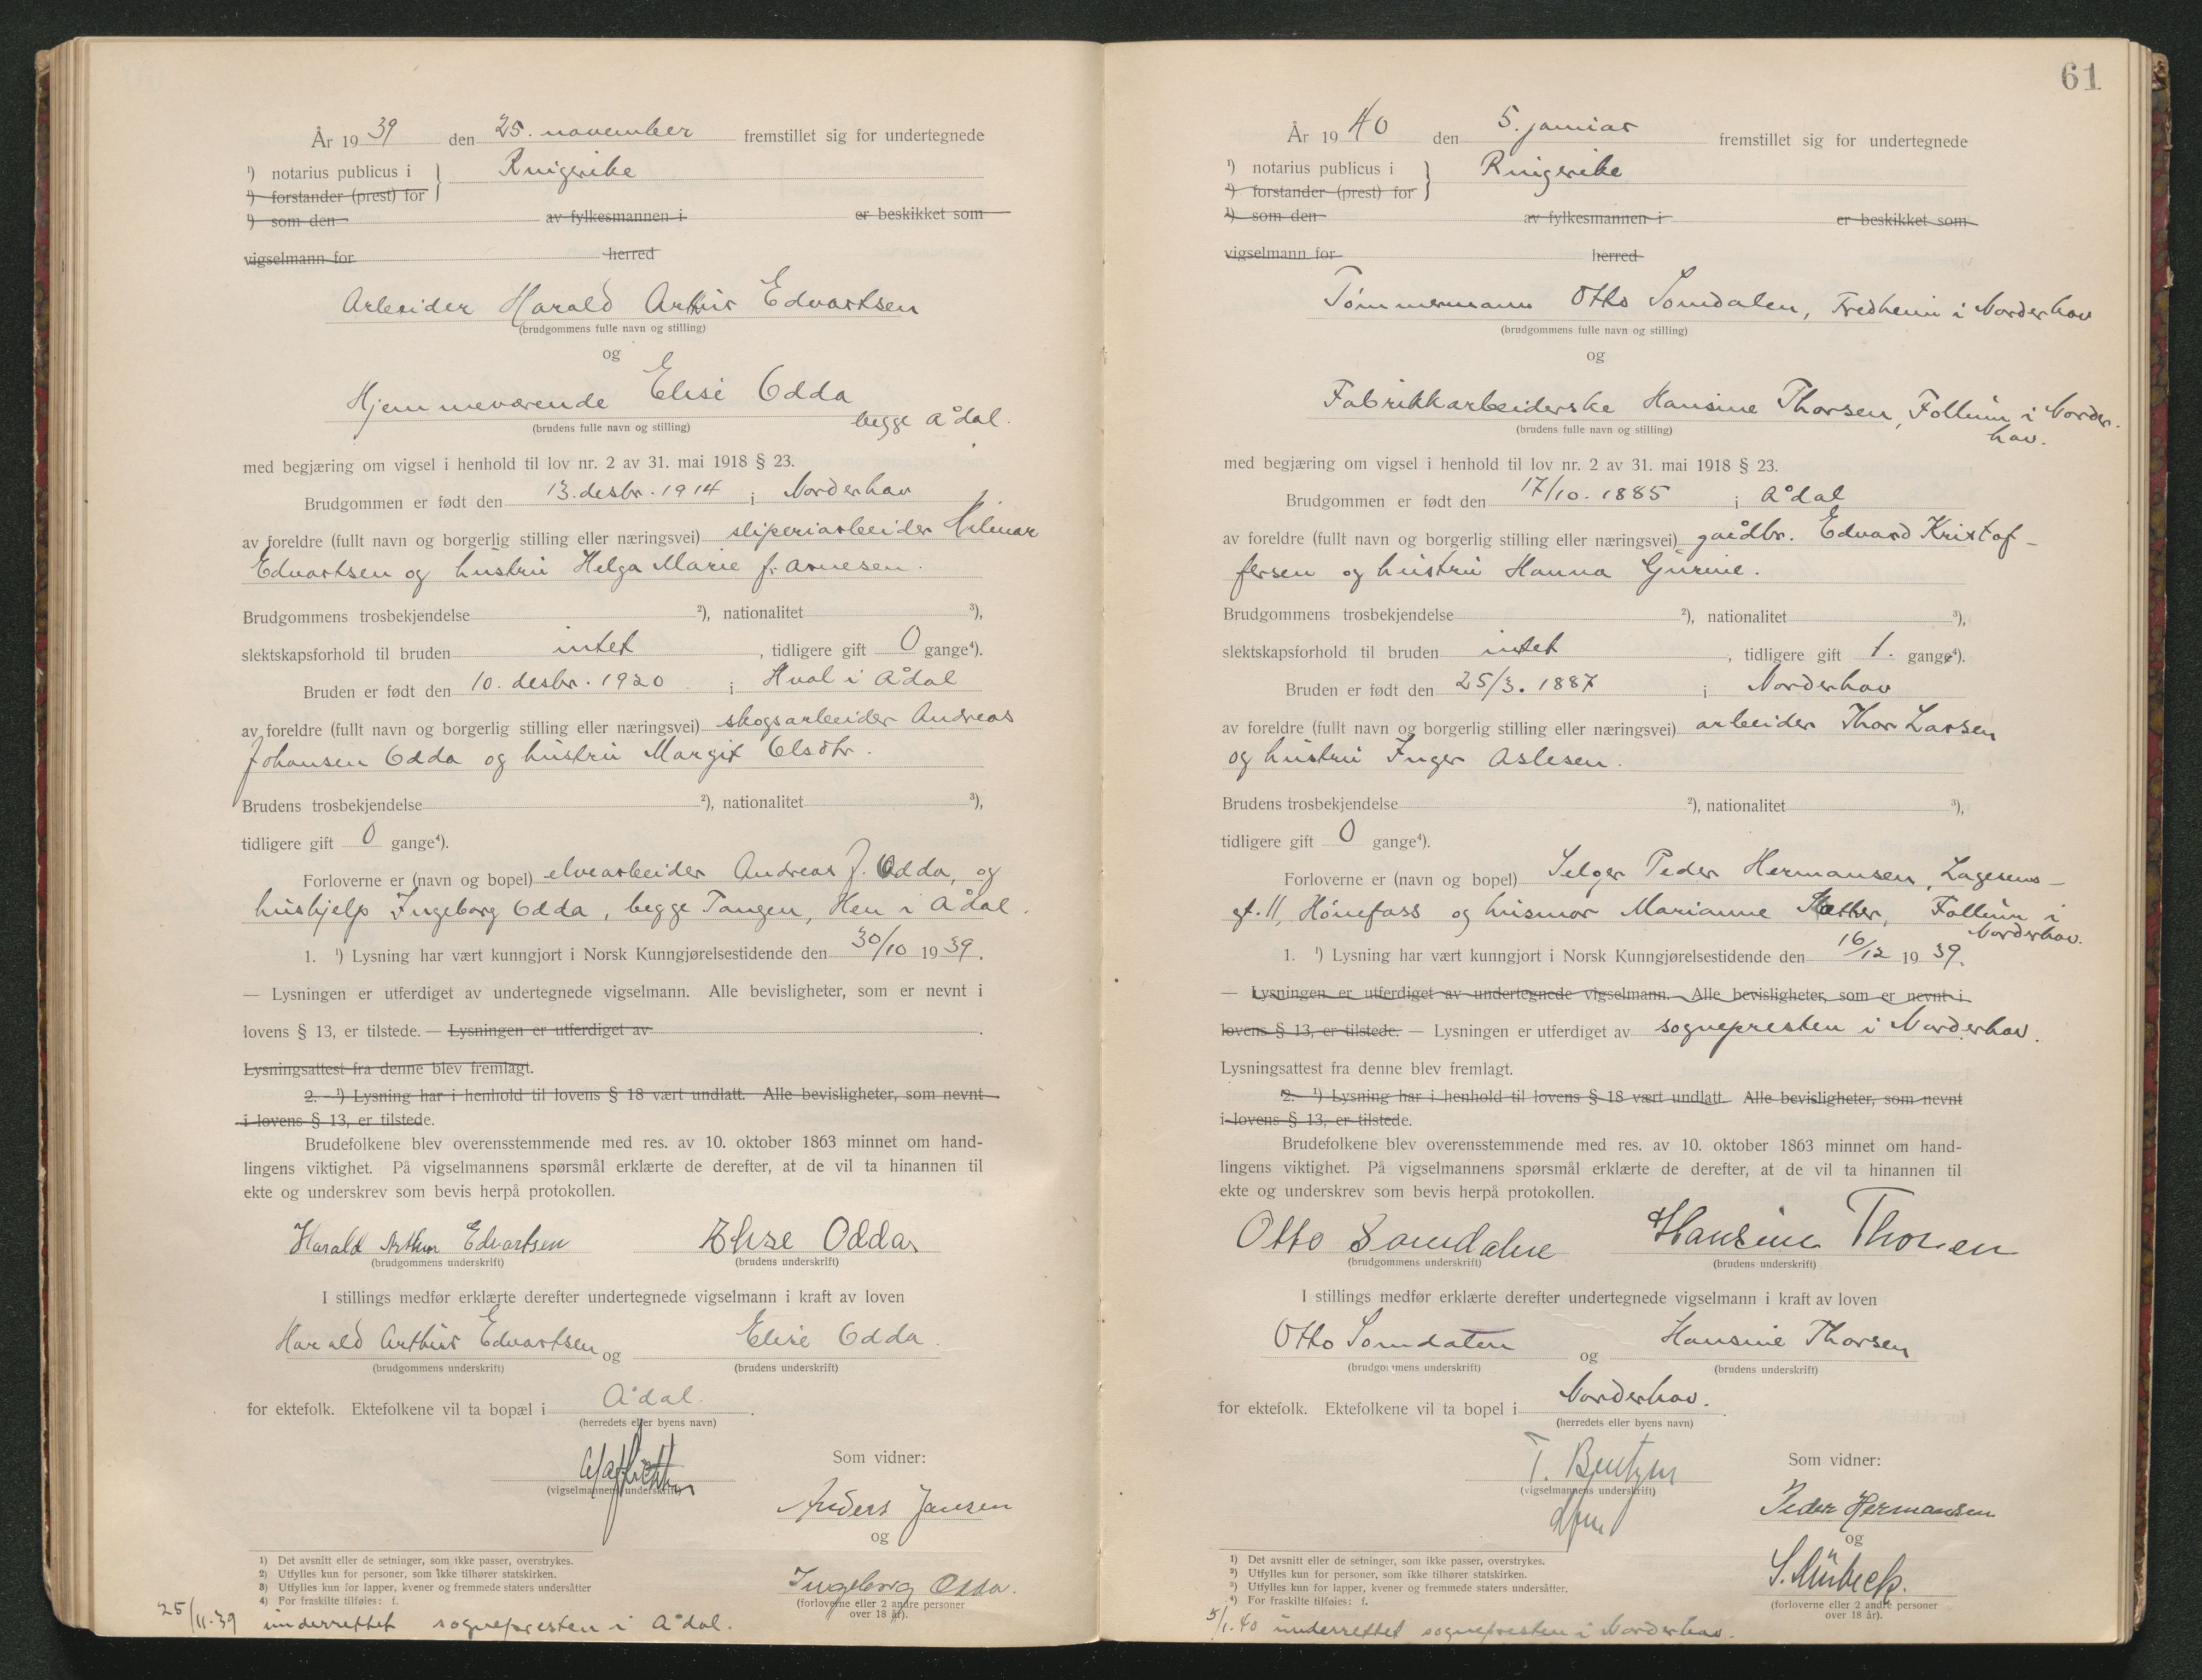 År 1939 den 25. november fremstillet sig for undertegnede
¹) notarius publicus i } Ringerike
¹) forstander (prest) for
¹) som den av fylkesmannen i er beskikket som
vigselmann for herred
Arbeider Harald Arthur Edvartsen
(brudgommens fulle navn og stilling)
og
Hjemmeværende Elise Odda
begge Ådal.
(brudens fulle navn og stilling)
med begjæring om vigsel i henhold til lov nr. 2 av 31. mai 1918 § 23.
Brudgommen er født den 13. desbr. 1914 i Norderhov
av foreldre (fullt navn og borgerlig stilling eller næringsvei) sliperiarbeider Hilmar
Edvartsen og hustru Helga Marie f. Arnesen.
Brudgommens trosbekjendelse ²), nationalitet ³),
slektskapsforhold til bruden intet, tidligere gift 0 gange⁴).
Bruden er født den 10. desbr. 1920 i Hval i Ådal
av foreldre (fullt navn og borgerlig stilling eller næringsvei) skogsarbeider Andreas
Johansen Odda og hustru Margit Olsdtr.
Brudens trosbekjendelse ²), nationalitet ³),
tidligere gift 0 gange⁴).
Forloverne er (navn og bopel) elvearbeider Andreas J. Odda, og
hushjelp Ingeborg Odda, begge Tangen, Hen i Ådal.
1. ¹) Lysning har vært kunngjort i Norsk Kunngjørelsestidende den 30/10 1939.
— Lysningen er utferdiget av undertegnede vigselmann. Alle bevisligheter, som er nevnt i
lovens § 13, er tilstede. — Lysningen er utferdiget av .
Lysningsattest fra denne blev fremlagt.
2. ¹) Lysning har i henhold til lovens § 18 vært undlatt. Alle bevisligheter, som nevnt
i lovens § 13, er tilstede.
Brudefolkene blev overensstemmende med res. av 10. oktober 1863 minnet om hand-
lingens viktighet. På vigselmannens spørsmål erklærte de derefter, at de vil ta hinannen til
ekte og underskrev som bevis herpå protokollen.
Harald Arthur Edvartsen Elise Odda
(brudgommens underskrift) (brudens underskrift)
I stillings medfør erklærte derefter undertegnede vigselmann i kraft av loven
Harald Arthur Edvartsen og Elise Odda.
(brudgommens underskrift) (brudens underskrift)
for ektefolk. Ektefolkene vil ta bopæl i Ådal.
(herredets eller byens navn)
Som vidner:
(vigselmannens underskrift)
Anders Jansen
og
Ingeborg Odda.
(forloverne eller 2 andre personer
over 18 år).
1) Det avsnitt eller de setninger, som ikke passer, overstrykes.
2) Utfylles kun for personer, som ikke tilhører statskirken.
3) Utfylles kun for lapper, kvener og fremmede staters undersåtter
4) For fraskilte tilføies: f.
25/11.39 underrettet sognepresten i Ådal.
61
År 1940 den 5. januar fremstillet sig for undertegnede
¹) notarius publicus i } Ringerike
¹) forstander (prest) for
¹) som den av fylkesmannen i er beskikket som
vigselmann for herred
Tømmermann Otto Somdalen, Fredheim i Norderhov
(brudgommens fulle navn og stilling)
og
Fabrikkarbeiderske Hansine Thorsen, Follum i Norder-
hov.
(brudens fulle navn og stilling)
med begjæring om vigsel i henhold til lov nr. 2 av 31. mai 1918 § 23.
Brudgommen er født den 17/10. 1885 i Ådal
av foreldre (fullt navn og borgerlig stilling eller næringsvei) gårdbr. Edvard Kristof-
fersen og hustru Hanna Gurine.
Brudgommens trosbekjendelse ²), nationalitet ³),
slektskapsforhold til bruden intet, tidligere gift 1. gange⁴).
Bruden er født den 25/3. 1887 i Norderhov
av foreldre (fullt navn og borgerlig stilling eller næringsvei) arbeider Thor Larsen
og hustru Inger Aslesen.
Brudens trosbekjendelse ²), nationalitet ³),
tidligere gift 0 gange⁴).
Forloverne er (navn og bopel) Selger Peder Hermansen, Lagesens-
gt. 11, Hønefoss og husmor Marianne Sæther, Follum i
Norderhov.
1. ¹) Lysning har vært kunngjort i Norsk Kunngjørelsestidende den 16/12 1939.
— Lysningen er utferdiget av undertegnede vigselmann. Alle bevisligheter, som er nevnt i
lovens § 13, er tilstede. — Lysningen er utferdiget av sognepresten i Norderhov.
Lysningsattest fra denne blev fremlagt.
2. ¹) Lysning har i henhold til lovens § 18 vært undlatt. Alle bevisligheter, som nevnt
i lovens § 13, er tilstede.
Brudefolkene blev overensstemmende med res. av 10. oktober 1863 minnet om hand-
lingens viktighet. På vigselmannens spørsmål erklærte de derefter, at de vil ta hinannen til
ekte og underskrev som bevis herpå protokollen.
Otto Somdalen Hansine Thorsen
(brudgommens underskrift) (brudens underskrift)
I stillings medfør erklærte derefter undertegnede vigselmann i kraft av loven
Otto Somdalen og Hansine Thorsen
(brudgommens underskrift) (brudens underskrift)
for ektefolk. Ektefolkene vil ta bopel i Norderhov.
(herredets eller byens navn)
T. Bentzen Som vidner:
(vigselmannens underskrift)
Peder Hermansen
og
(forloverne eller 2 andre personer
over 18 år).
1) Det avsnitt eller de setninger, som ikke passer, overstrykes.
2) Utfylles kun for personer, som ikke tilhører statskirken.
3) Utfylles kun for lapper, kvener og fremmede staters undersåtter.
4) For fraskilte tilføies: f.
5/1.40 underrettet sognepresten i Norderhov.